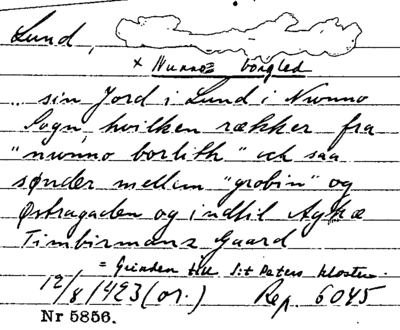 Lund,
x Nunnoz borgled
... sin Jord i Lund i Nunno
Sogn, hvilken rækker fra
"nunno borlith" och saa
sønder mellem "grobin" og
Østragaden og indtil Aghæ
Timbirmanz Gaard
= Grinden till S:t Peters kloster.
12/8 1423 (or.) Rep. 6045
Nr 5856.